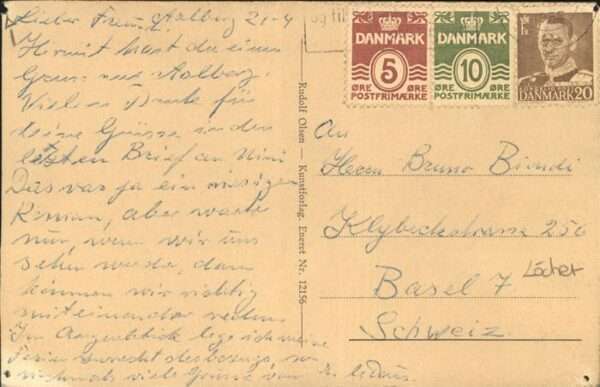 Lieber Freund, Aalborg 21-4
Hiermit hast du einen
Gruss aus Aalborg.
Vielen Dank für
deine Grüsse in den
letzten Brief an Mimi
Das war ja ein riesigen
Roman, aber warte
nur, wenn wir uns
sehn werde, dann
können wir richtig
miteinander reden
Im Augenblick
viele Grüsse von
Rudolf Olsen — Kunstforlag. Eneret Nr. 12156
DANMARK
5
ØRE ØRE
POSTFRIMÆRKE
DANMARK
10
ØRE ØRE
POSTFRIMÆRKE
DANMARK 20
An
Herrn Bruno Biondi
Klybeckstrasse 250
Basel 7
Löcher
Schweiz